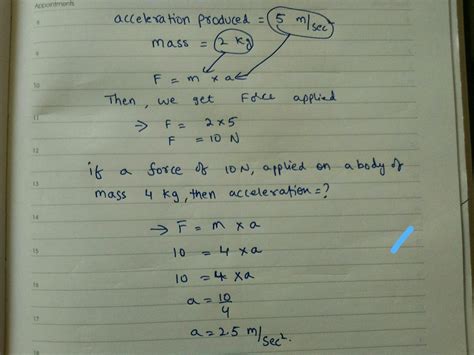 Appointments
acceleration produced = 5 m/sec²
mass = 2 kg
F = m × a
Then, we get Force applied
→ F = 2×5
F = 10 N
if a force of 10N, applied on a body of
mass 4 kg, then acceleration=?
→ F = m × a
10 = 4 × a
10 = 4 × a
a = 10/4
a = 2.5 m/sec².